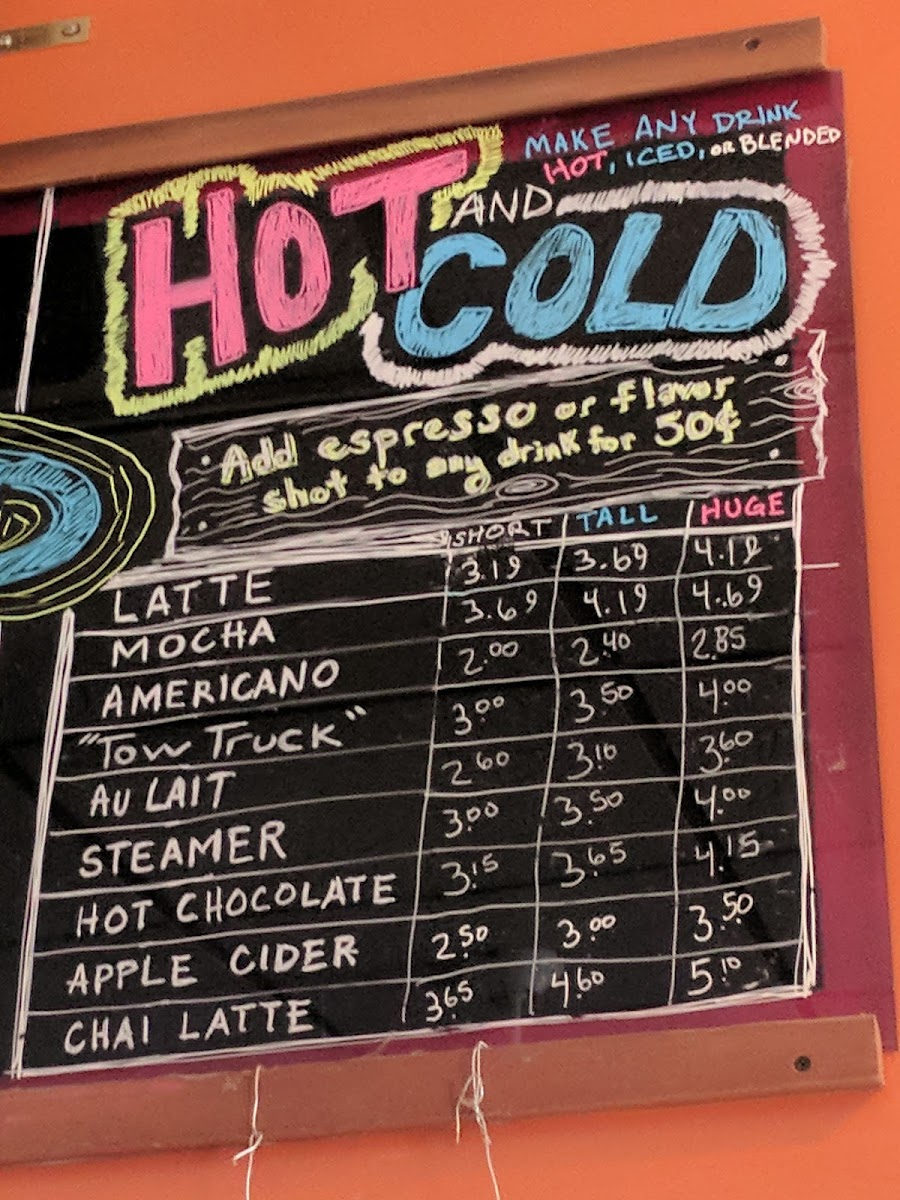 MAKE ANY DRINK
HOT, ICED, OR BLENDED
HOT AND
COLD
Add espresso or flavor
shot to any drink for 50¢
SHORT TALL HUGE
LATTE 3.19 3.69 4.19
MOCHA 3.69 4.19 4.69
AMERICANO 2.00 2.40 2.85
"TOW TRUCK" 3.00 3.50 4.00
AU LAIT 2.60 3.10 3.60
STEAMER 3.00 3.50 4.00
HOT CHOCOLATE 3.15 3.65 4.15
APPLE CIDER 2.50 3.00 3.50
CHAI LATTE 3.65 4.60 5.10